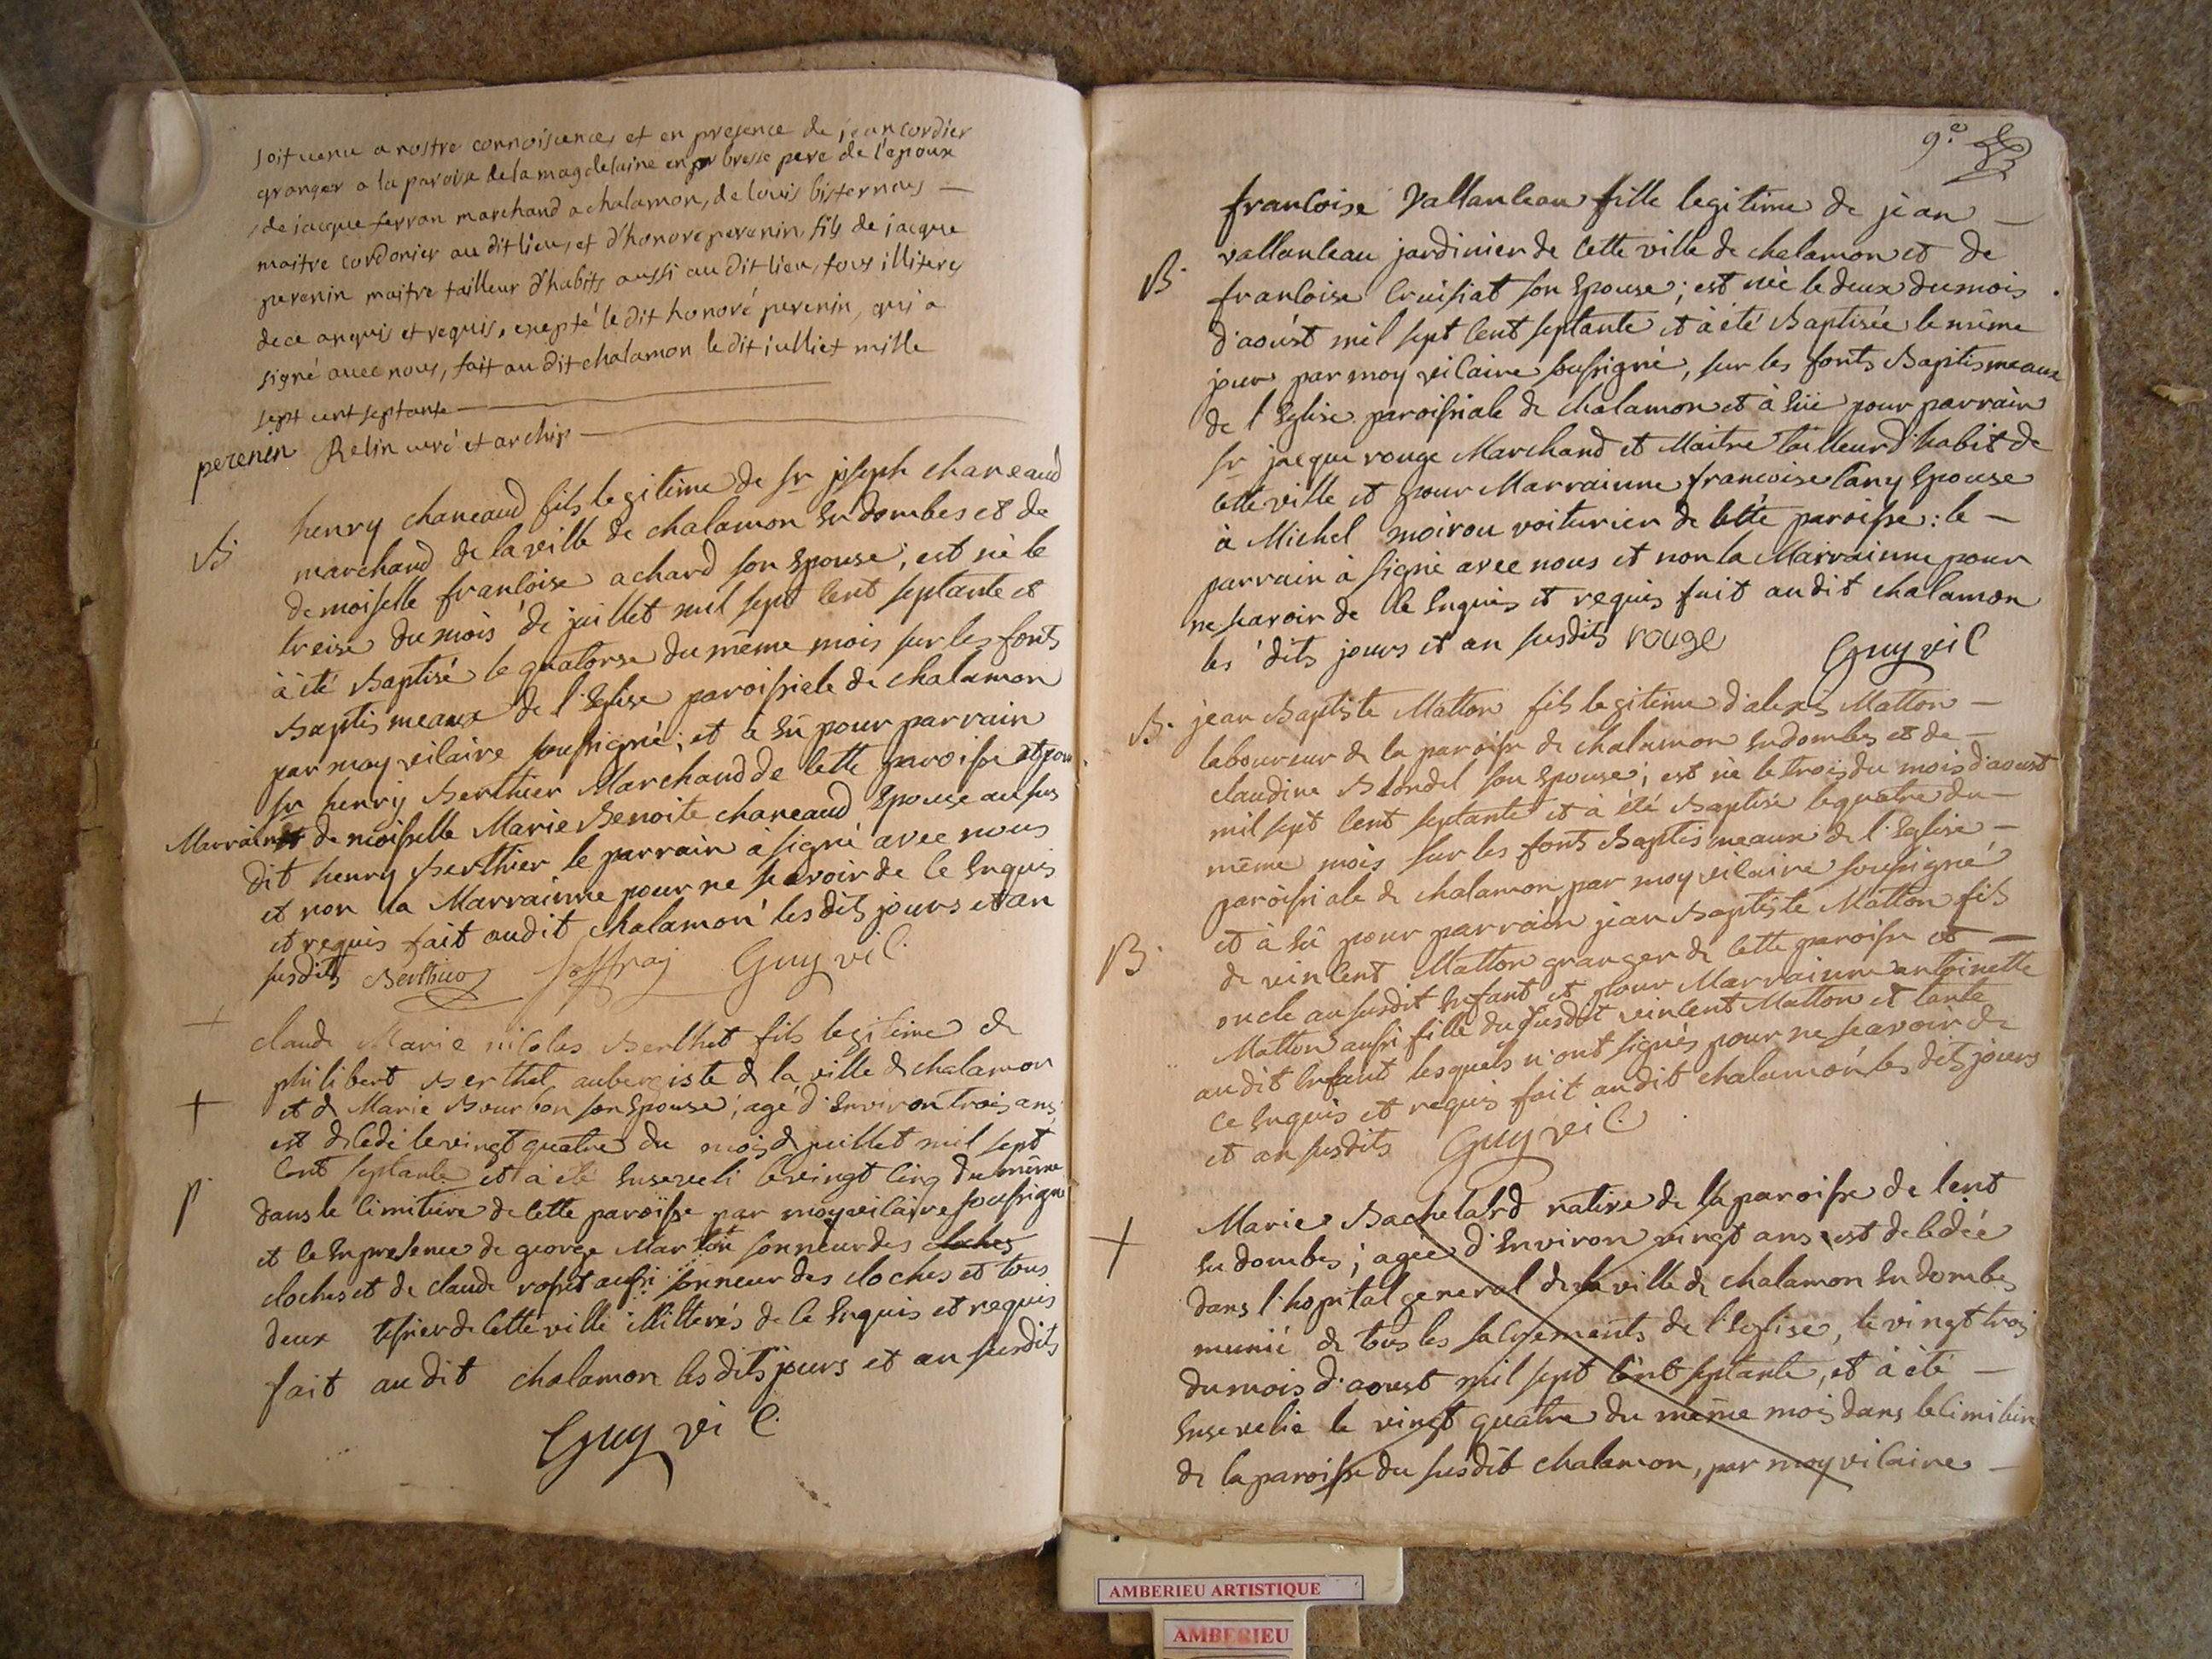 soit venu a nostre connoisance, et en presence de jean cordier
granger a la paroise de la magdelaine en bresse pere de l'epoux
de jacque ferran marchand a chalamon, de louis bisternay —
maitre cordonier au dit lieu, et d'honoré perenin fils de jacque
perenin maitre tailleur d'habits aussi au dit lieu, tous illiterés
de ce anquis et requis, exepté le dit honoré perenin, qui a
signé avec nous, fait au dit chalamon le dit juilliet mille
sept cent septante
perenin Relin curé et archip
B. henry chaneaud fils legitime de Sr joseph chaneaud
marchand de la ville de chalamon en dombes et de
demoiselle francoise achard son Epouse; est né le
treise du mois de juillet mil sept cent septante et
à été Baptisé le quatorse du même mois sur les fonts
Baptismeaux de l'Eglise paroissiale de chalamon
par moy vicaire soussigné; et à Eü pour parrain
Sr henry Berthier Marchand de cette paroisse et pour
Marraine demoiselle Marie Benoite chaneaud Epouse au sus
dit henry Berthier le parrain à signé avec nous
et non la Marrainne pour ne scavoir de ce Enquis
et requis fait audit chalamon les dits jours et an
susdits Berthier joffray Guy vic.
+ claude Marie nicolas Berthet fils legitime de
philibert Berthet aubergiste de la ville de chalamon
+ et de Marie Bourbon son Epouse; agé d'Environ trois ans;
est décedé le vingt quatre du mois de juillet mil sept
cent septante et à été Enseveli le vingt cinq du même
p dans le cimitiere de cette paroisse par moy vicaire soussigné
et ce En presence de george Marton sonneur des cloches
cloches et de claude rosset aussi sonneur des cloches et tous
deux de cette ville illitterés de ce Enquis et requis
fait au dit chalamon les dits jours et an susdits
Guy vic.
9.e
francoise Vallanceau fille legitime de jean —
vallanceau jardinier de cette ville de chalamon et de
B. francoise Cruisiat son Epouse; est née le deux du mois
d'aoust mil sept cent septante et à été Baptisée le même
jour par moy vicaire soussigné, sur les fonts Baptismeaux
de l'Eglise paroissiale de chalamon et à Eüe pour parrain
Sr jacque rouge Marchand et Maitre tailleur d'habit de
cette ville et pour Marrainne francoise Cany Epouse
à Michel moirou voiturier de cette paroisse: le —
parrain à signé avec nous et non la Marrainne pour
ne scavoir de ce Enquis et requis fait au dit chalamon
les dits jours et an susdits rouge Guy vic
B. jean Baptiste Matton fils legitime d'alexis Matton —
laboureur de la paroisse de chalamon en dombes et de —
claudine Blondel son Epouse; est né le trois du mois d'aoust
mil sept cent septante et à été Baptisé le quatre du —
même mois sur les fonts Baptismeaux de l'Eglise —
paroissiale de chalamon par moy vicaire soussigné
et à Eü pour parrain jean Baptiste Matton fils
B. de vincent Matton granger de cette paroisse et —
oncle au susdit Enfant et pour Marrainne antoinette
Matton aussi fille du susdit vincent Matton et tante
au dit Enfant lesquels n'ont signés pour ne scavoir de
ce Enquis et requis fait au dit chalamon les dits jours
et an susdits Guy vic.
+ Marie Bachelard native de la paroisse de lent
En dombes; agée d'Environ vingt ans est decedée
dans l'hopital general de la ville de chalamon En dombes
munie de tous les sacrements de l'Eglise, le vingt trois
du mois d'aoust mil sept cent septante, et à été —
Ensevelie le vingt quatre du même mois dans le cimitiere
de la paroisse du susdit chalamon, par moy vicaire —
AMBERIEU ARTISTIQUE
AMBERIEU